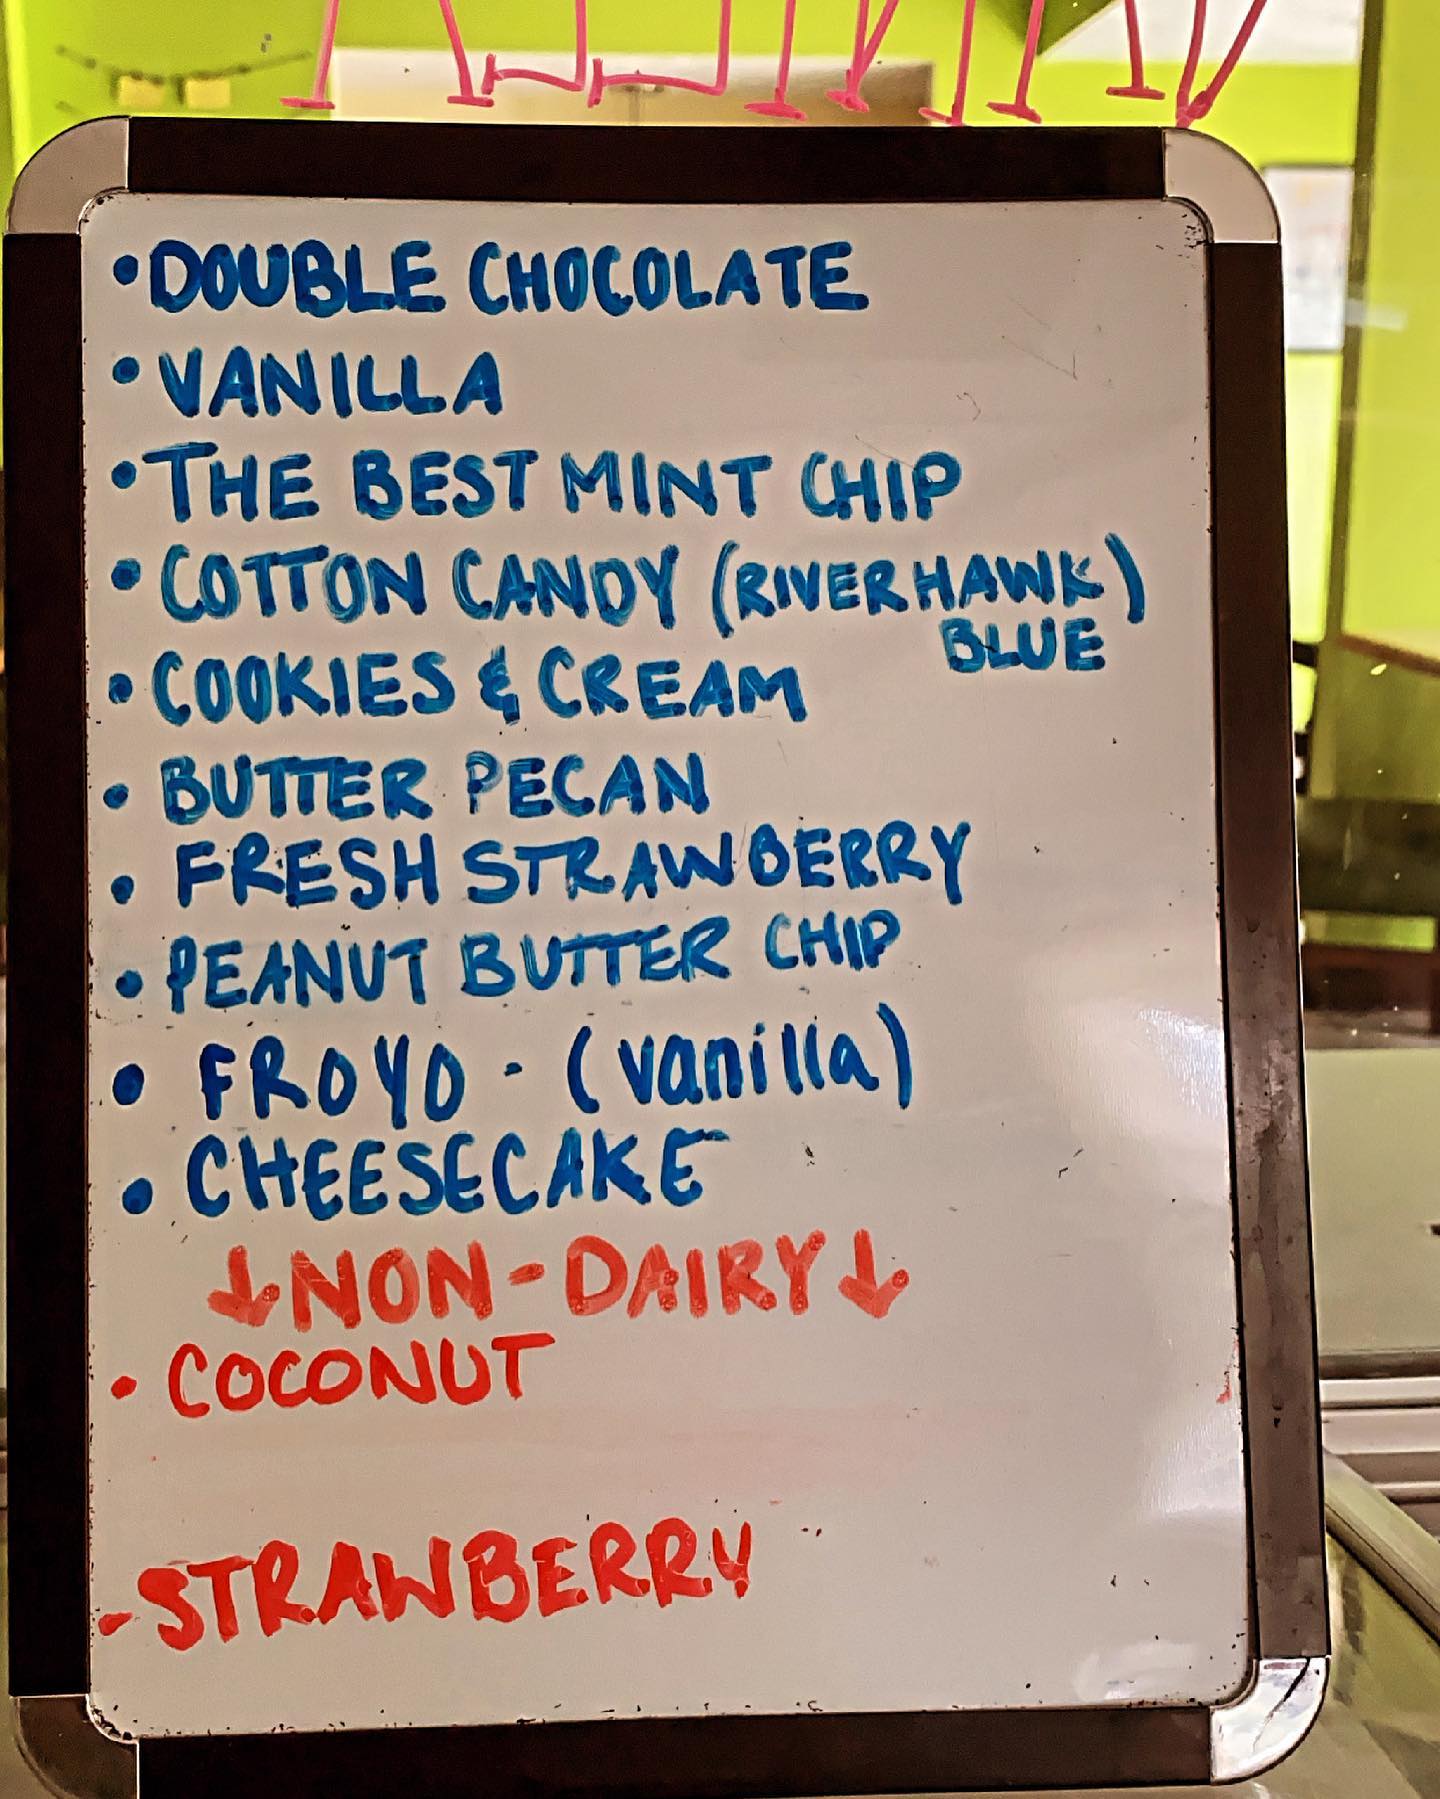 • DOUBLE CHOCOLATE
• VANILLA
• THE BEST MINT CHIP
• COTTON CANDY (RIVERHAWK)
BLUE
• COOKIES & CREAM
• BUTTER PECAN
• FRESH STRAWBERRY
• PEANUT BUTTER CHIP
• FROYO - (vanilla)
• CHEESECAKE
↓ NON-DAIRY ↓
• COCONUT
- STRAWBERRY